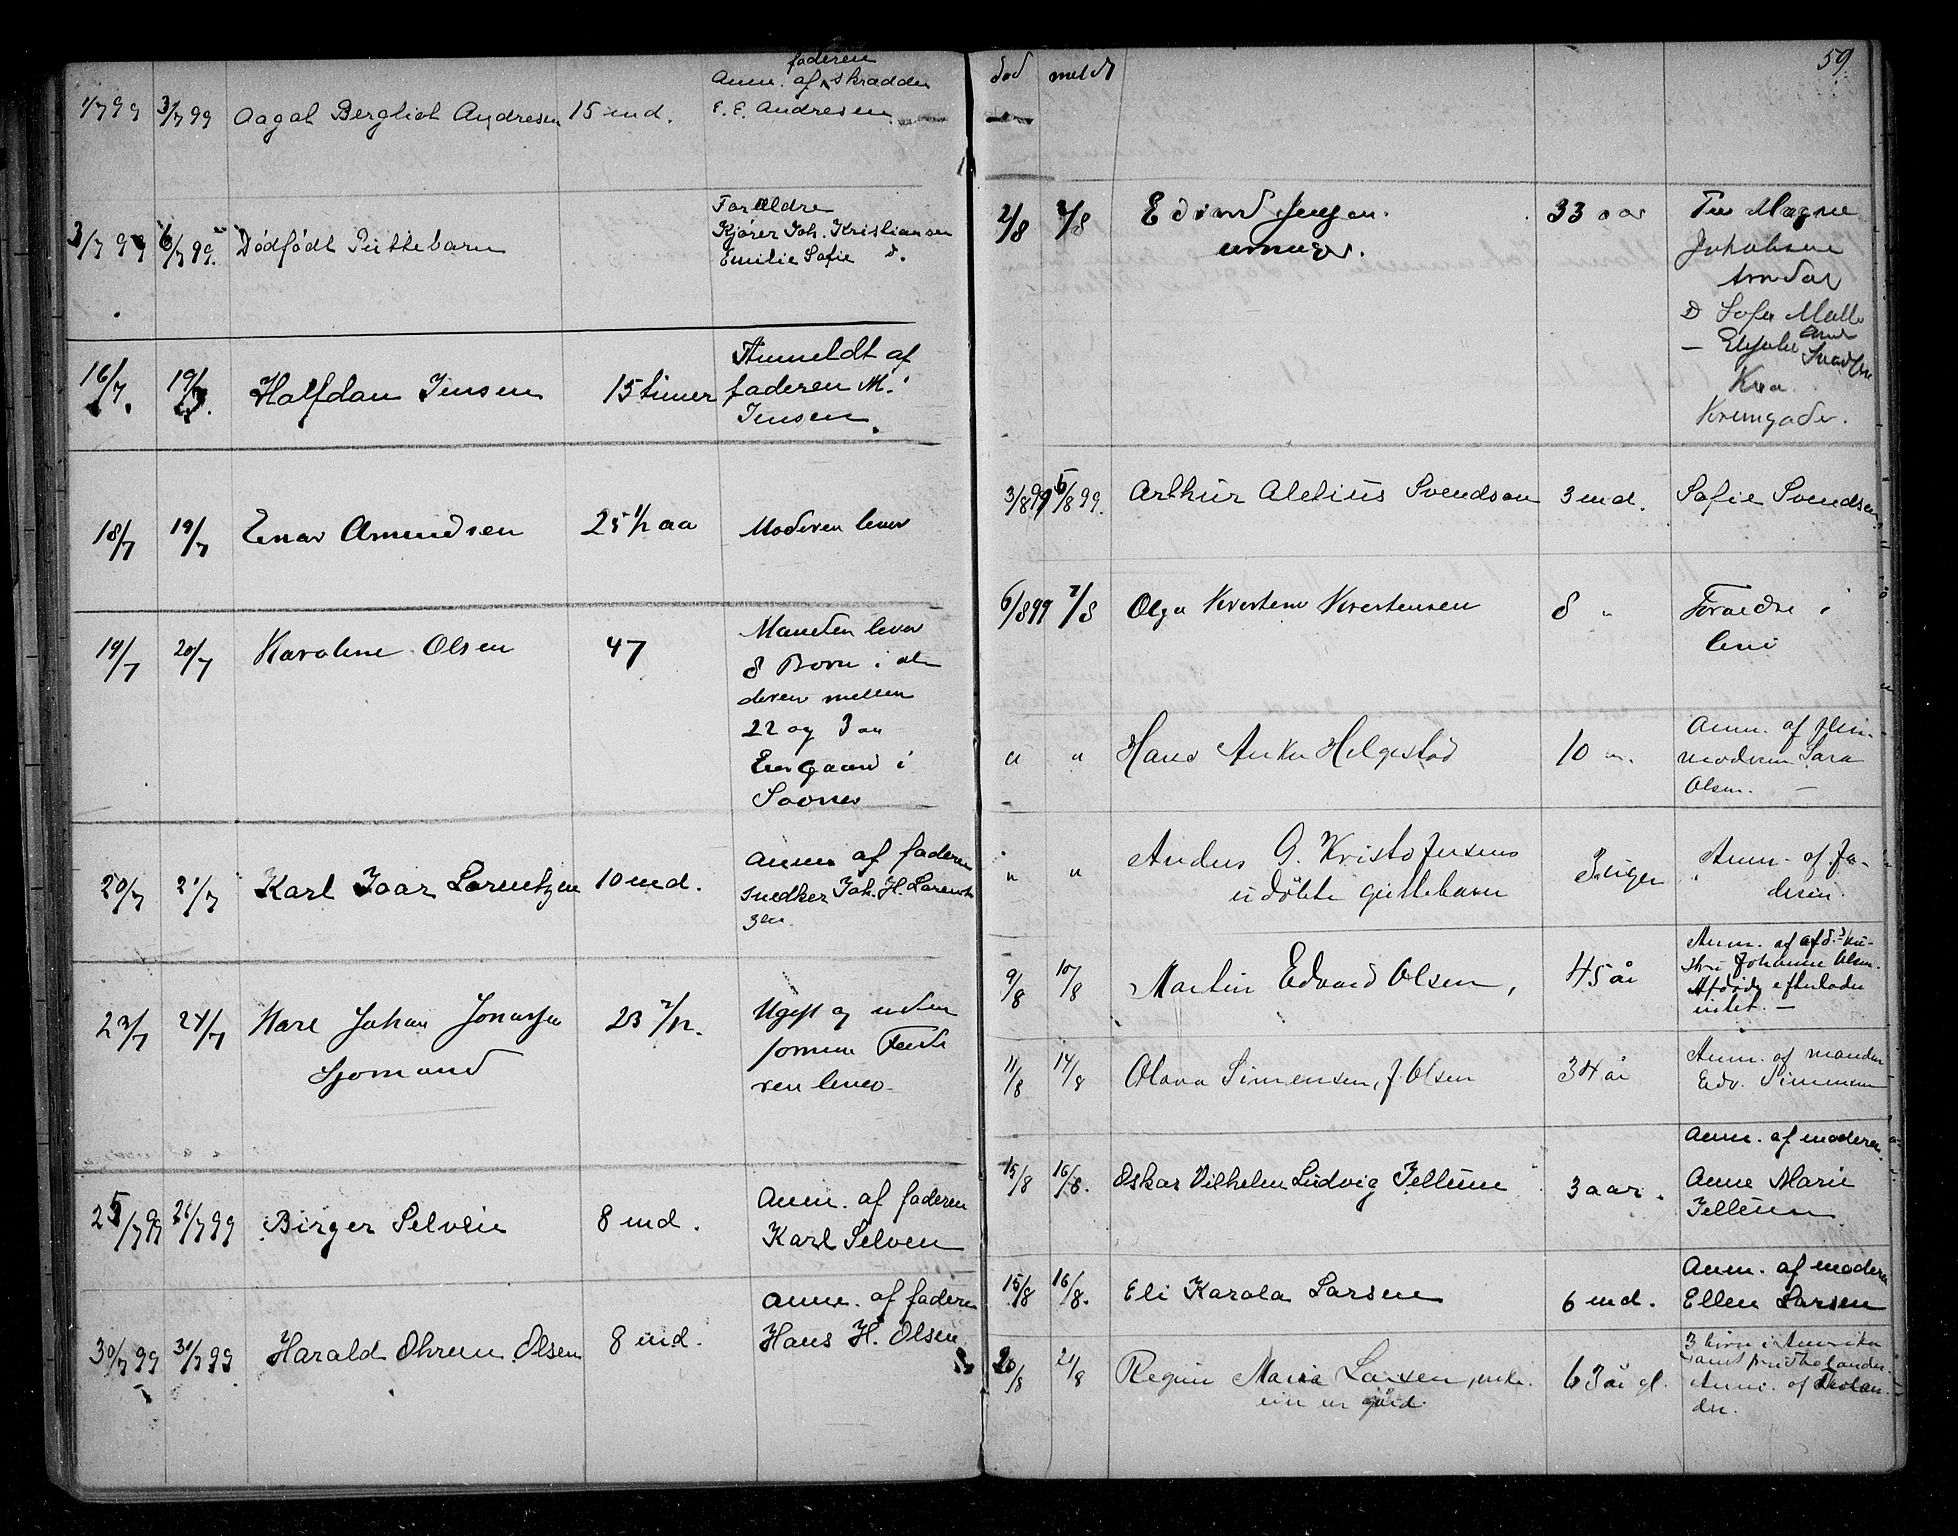 faderen
Anm. af skrædder
1/7 99 3/7 99 Aagot Bergliot Andresen 15 md. E. E. Andresen
Forældre
3/7 99 6/7 99. Dødfødt Guttebarn Kjører Joh. Kristiansen
Emilie Sofie d.
Anmeldt af
16/7 19/7. Halfdan Jensen 15 timer faderen M.
Jensen.
18/7 19/7 Einar Amundsen 25 1/2 aa Moderen lever
19/7 20/7 Karoline Olsen 47 Manden lever
8 Børn i al
deren mellem
22 og 3 aa
Eier Gaard i
Anm. af faderen
20/7 21/7 Karl Ivar Lorentzen 10 md. Snedker Joh. H. Lorent
zen.
23/7 24/7 Karl Johan Jonassen 23 7/12. Ugift og uden
Sjømand formue
ren lever
Anm. af faderen
25/7 99 26/7 99 Birger Selven 8 md. Karl Selven
Anm. af faderen
30/7 99 31/7 99 Harald Ohren Olsen 8 md. Hans H. Olsen.
59.
død meldt
2/8 3/8 33 aar Magne
Jakobsen
Arendal
D Sofie
Kra.
3/8 99 5/8 99. Arthur Aletius Svendsen 3 md. Safie Svendsen
6/8 99 7/8 Olga Kristine Kristensen 8 " Forældre
" " Hans Anker Helgestad 10 m. Anm. af Plei-
moderen Sara
Olsen. —
" " Anders G. Kristofersens 3 uger Anm. af fa-
udøbte guttebarn deren.
9/8 10/8 Martin Edvard Olsen, 45 år Anm. af afd.s hu-
stru Johanne Olsen.
Afdøde efterlader
intet. —
11/8 14/8 Olava Simensen, f. Olsen 34 år Anm. af manden
Edv. Simensen
Anm. af moderen
15/8 16/8. Oskar Vilhelm Ludvig Jellum 3 aar. Anne Marie
Jellum
Anm. af moderen
15/8 16/8. Eli Karola Larsen 6 md. Ellen Larsen
20/8 21/8 Regine Maria Larsen, enke. 63 år gl. 3 børn i Amerika
eier en gård. samt
Anm. af